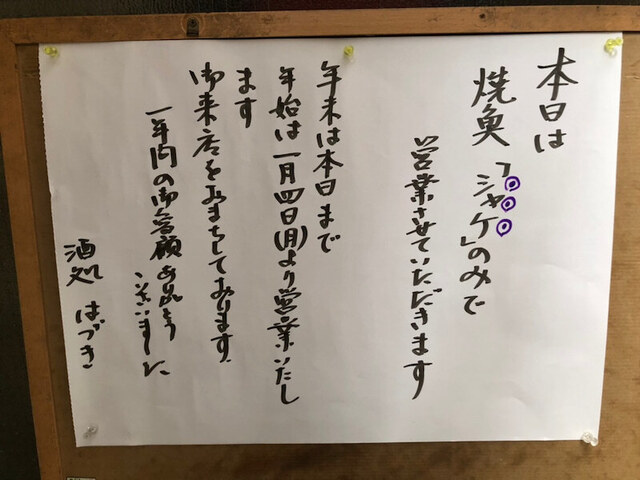 本日は
焼魚「シャケ」のみで
営業させていただきます
年末は本日まで
年始は一月四日(月)より営業いたし
ます
御来店をお待ちしております。
一年間の御愛顧ありがとう
ございました
酒処 はづき